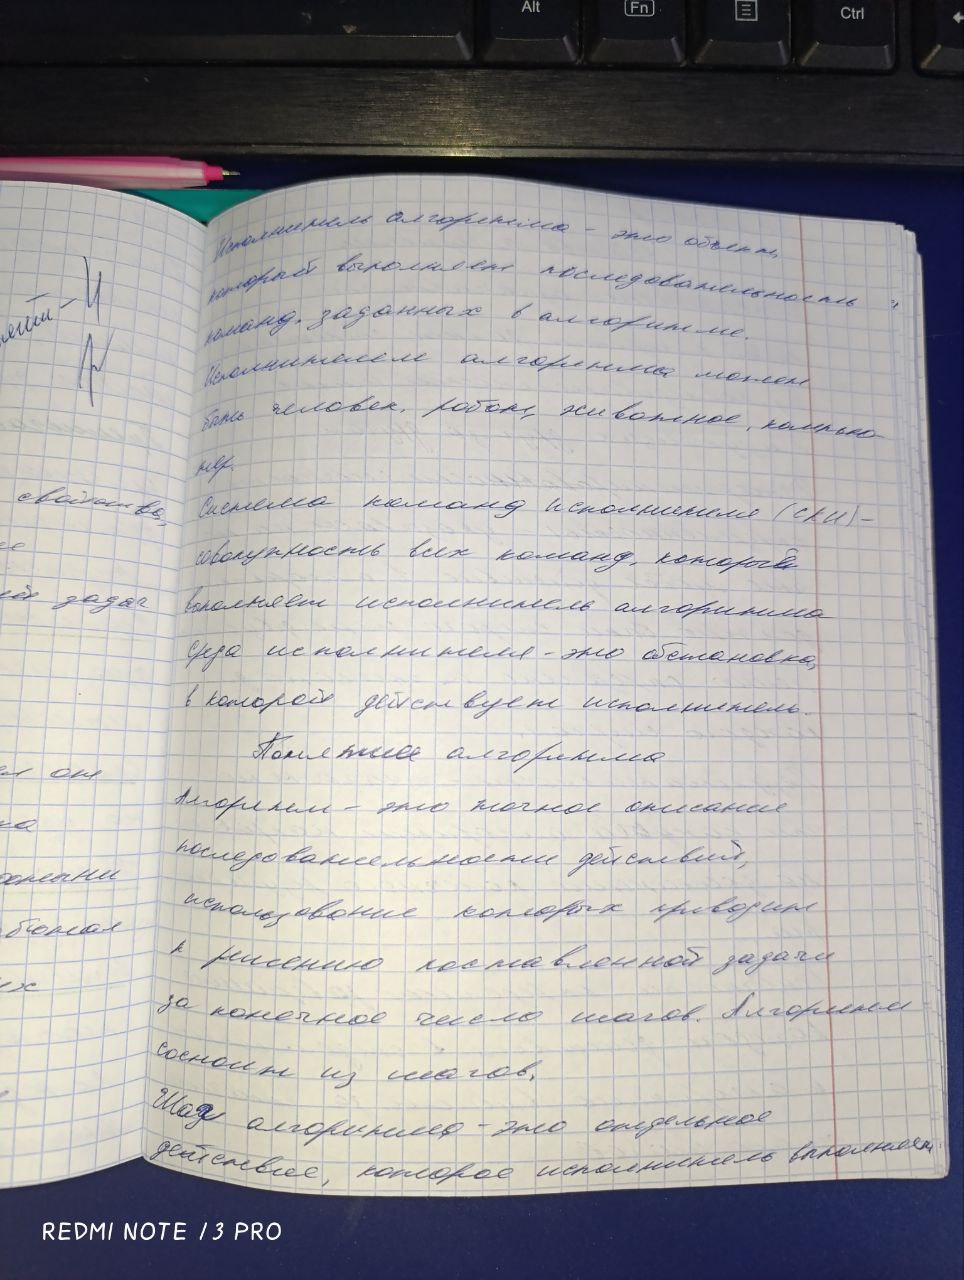 Alt
Fn
Ctrl
Исполнитель алгоритма - это объект,
который выполняет последовательность
команд, заданных в алгоритме.
Исполнителем алгоритма может
быть человек, робот, животное, компью-
тер.
Система команд исполнителя (СКИ) -
совокупность всех команд, который
выполняет исполнитель алгоритма
Среда исполнителя - это обстановка,
в которой действует исполнитель.
Понятие алгоритма
Алгоритм - это точное описание
последовательности действий,
использование которых приводит
к решению поставленной задачи
за конечное число шагов. Алгоритм
состоит из шагов.
Шаг алгоритма - это отдельное
действие, которое исполнитель выполняет
свойства,
задач
от
их
REDMI NOTE 13 PRO